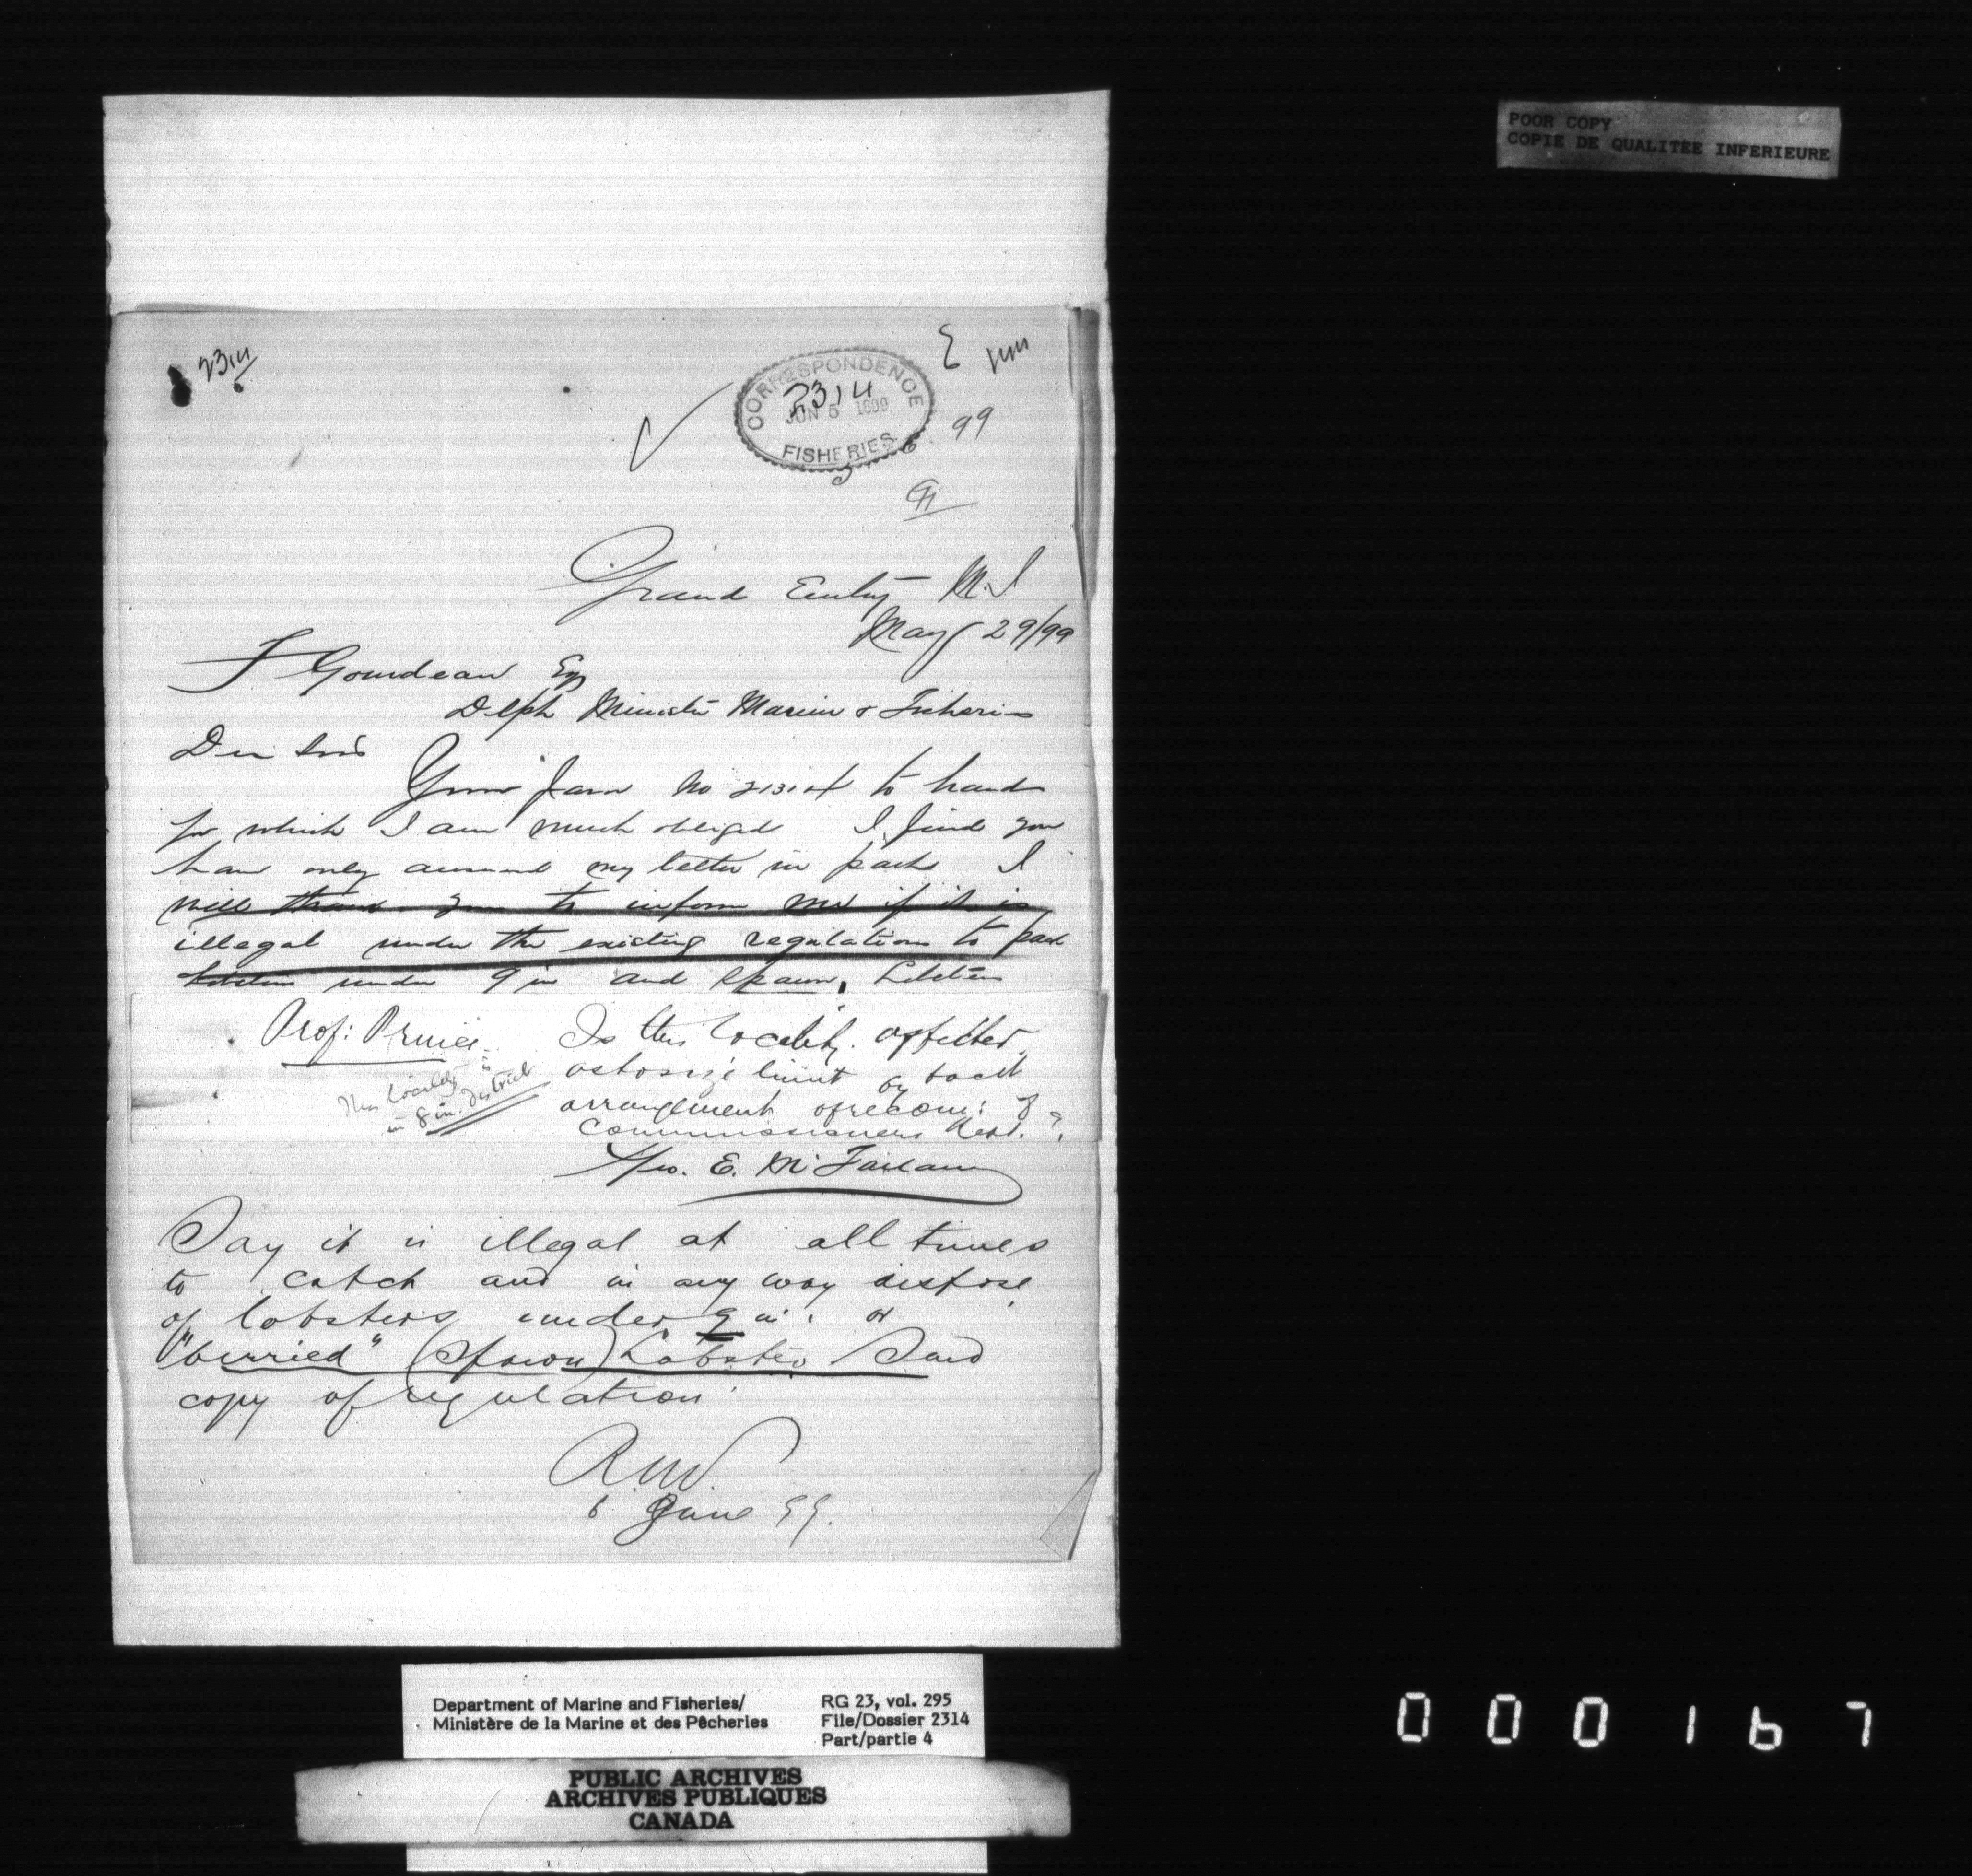 POOR COPY
COPIE DE QUALITEE INFERIEURE
2314
CORRESPONDENCE
2314
JUN 5 1899
FISHERIES
99
Grand Entry M.I
May 29/99
F Gourdeau Esq
Minister Marine & Fisheries
Dear Sir
Your favor No to hand
for which I am much obliged I find you
have only answered my letter in part I
will thank you to inform me if it is
illegal under the existing regulations to pack
lobsters under 9 in and spawn, Lobsters
Prof: Prince
Is this locality affected
as to size limit by
arrangement of recom: of
commissioners Rept. ?
This locality is
in 8 in. District
Geo. E. McFarlane
Say it is illegal at all times
to catch and in any way dispose
of lobsters under 9 in: or
"berried" (spawn) Lobster Send
copy of regulation.
R.N.V.
6 June 99.
Department of Marine and Fisheries/
Ministère de la Marine et des Pêcheries
RG 23, vol. 295
File/Dossier 2314
Part/partie 4
PUBLIC ARCHIVES
ARCHIVES PUBLIQUES
CANADA
000167